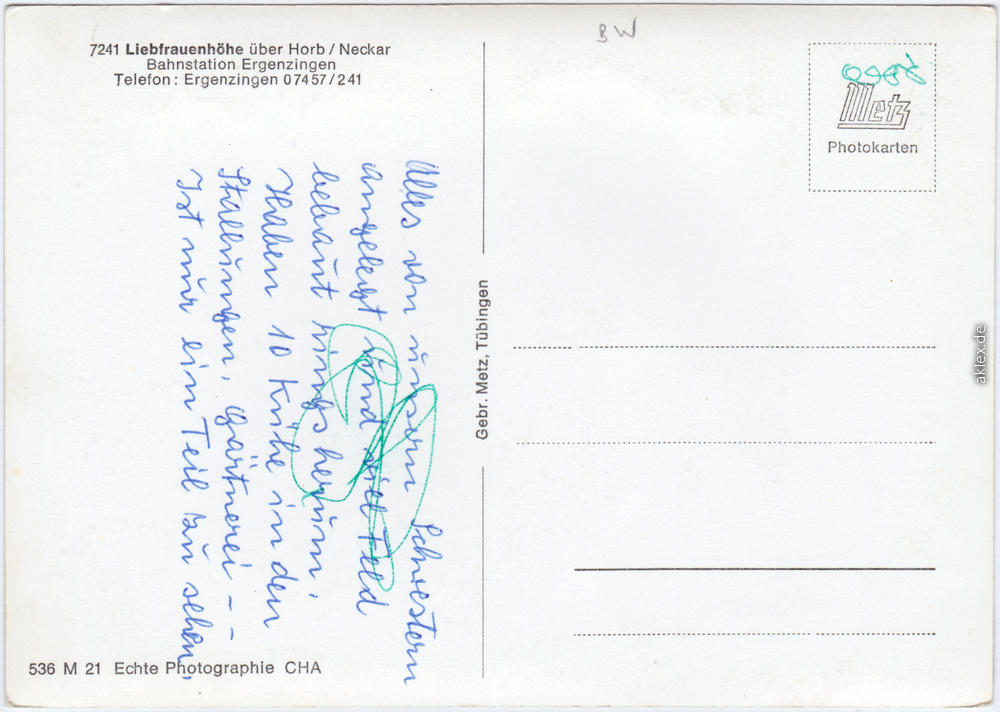 7241 Liebfrauenhöhe über Horb / Neckar
Bahnstation Ergenzingen
Telefon: Ergenzingen 07457/241
BW
Metz
Photokarten
Alles von unsern Schwestern
angelegt und viel Feld
bebaut ringsherum.
Haben 10 Kühe in den
Stallungen, Gärtnerei --
Ist nur ein Teil zu sehen.
Gebr. Metz, Tübingen
536 M 21 Echte Photographie CHA
aklex.de